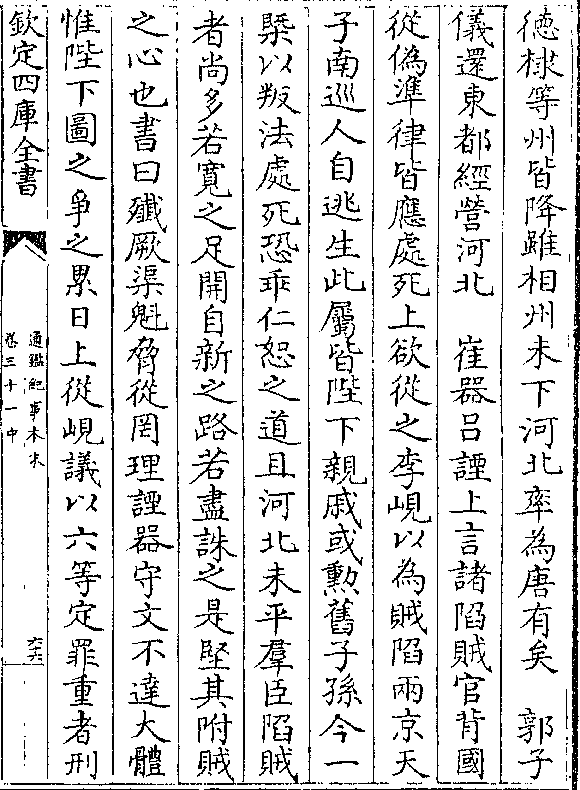 德棣等州皆降雖相州未下河北率為唐有矣　郭子
儀還東都經營河北　崔器吕諲上言諸陷賊官背國
從偽準律皆應處死上欲從之李峴以為賊陷兩京天
子南巡人自逃生此屬皆陛下親戚或勲舊子孫今一
槩以叛法處死恐乖仁恕之道且河北未平羣臣陷賊
者尚多若寛之足開自新之路若盡誅之是堅其附賊
之心也書曰殱厥渠魁脅從罔理諲器守文不達大體
惟陛下圖之爭之累日上從峴議以六等定罪重者刑
欽定四庫全書
通鑑紀事本末
卷三十一中
六十六